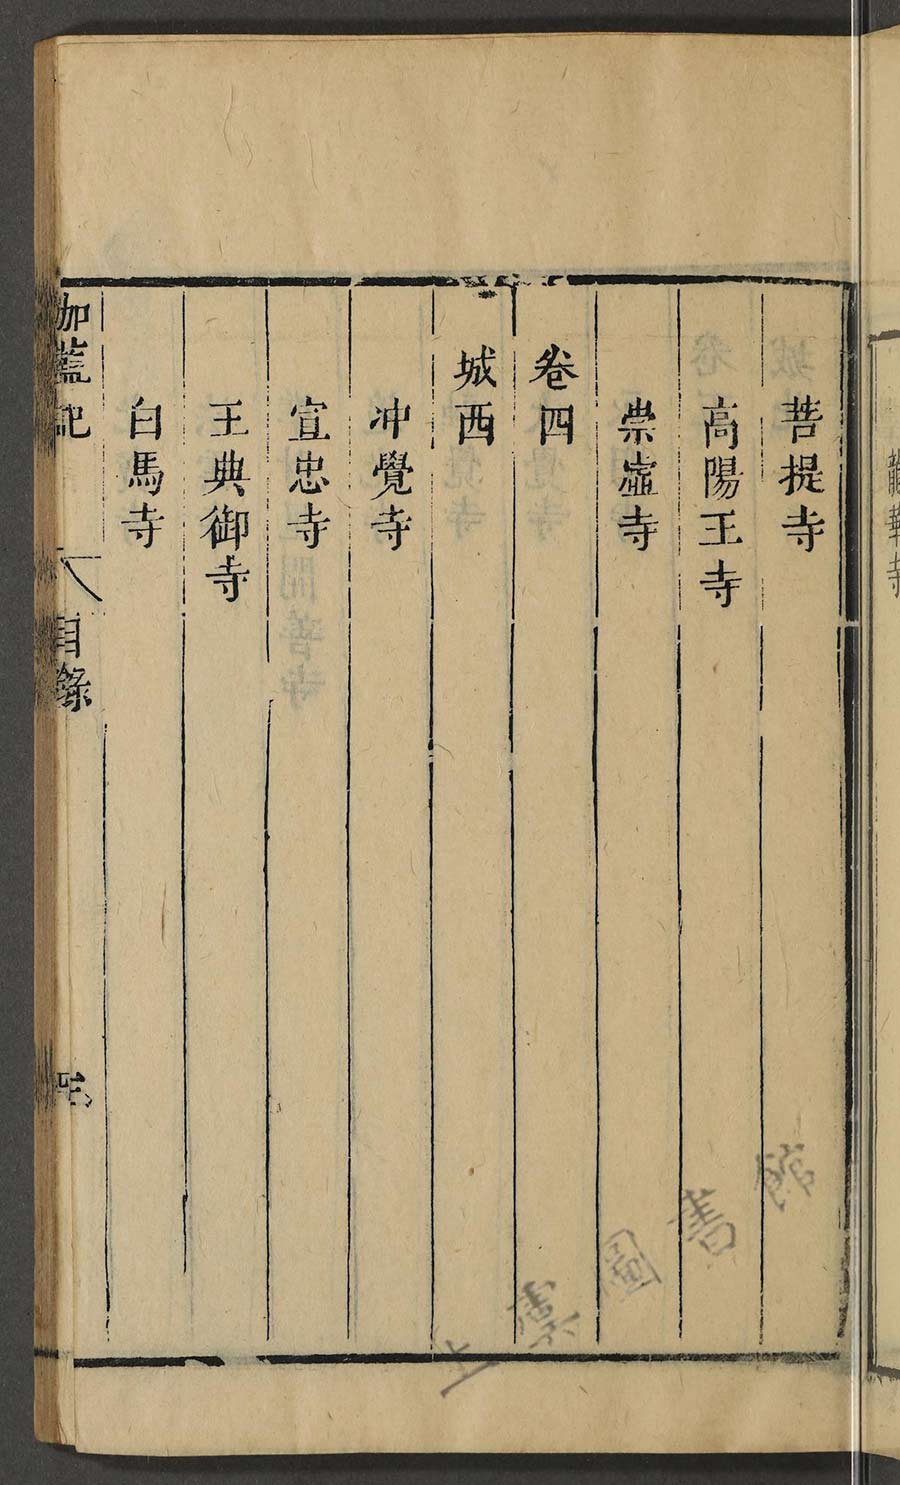 菩提寺
高陽王寺
崇虛寺
卷四
城西
冲覺寺
宣忠寺
王典御寺
白馬寺
伽藍記
目錄
龍華寺
上虞圖書館